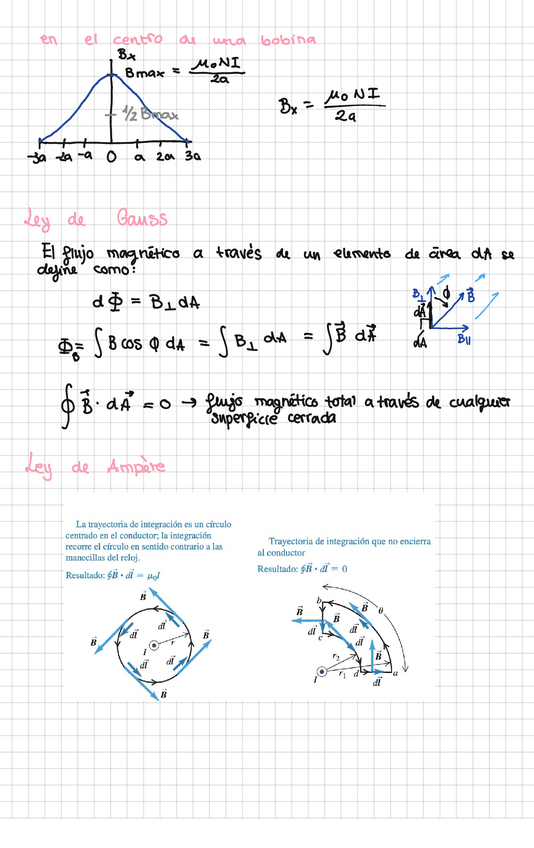 en el centro de una bobina
Bx
Bmax = μ₀NI / 2a
1/2 Bmax
Bx = μ₀NI / 2a
-3a -2a -a 0 a 2a 3a
Ley de Gauss
El flujo magnético a través de un elemento de área dA se
define como:
dΦ = B⊥dA
Φ_B = ∫ B cos φ dA = ∫ B⊥ dA = ∫ B⃗ dA⃗
B⊥ φ B⃗
dA⃗
dA B||
∮ B⃗ · dA⃗ = 0 → flujo magnético total a través de cualquier
superficie cerrada
Ley de Ampère
La trayectoria de integración es un círculo
centrado en el conductor; la integración
recorre el círculo en sentido contrario a las
manecillas del reloj.
Resultado: ∮B⃗ • dl⃗ = μ₀I
B⃗
dl⃗
B⃗ B⃗
dl⃗
I r
dl⃗ dl⃗
B⃗
Trayectoria de integración que no encierra
al conductor
Resultado: ∮B⃗ • dl⃗ = 0
b
B⃗ B⃗ θ
B⃗
dl⃗ c dl⃗
dl⃗
r₂ B⃗
I r₁ d a
dl⃗